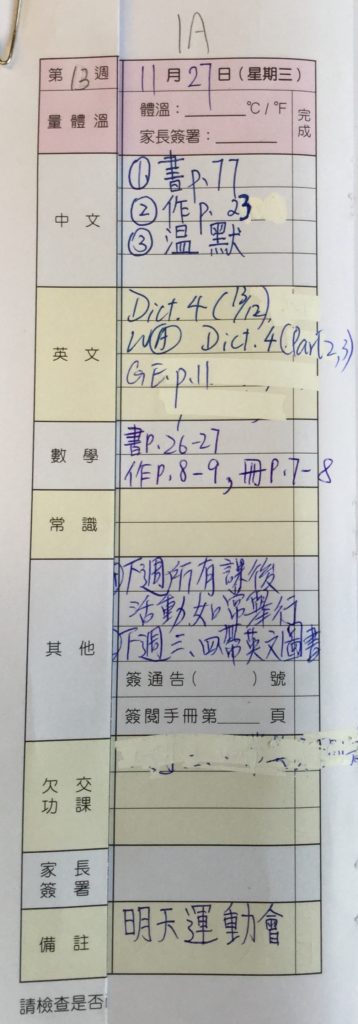 1A
第13週 11月27日(星期三)
量體溫 體溫：______℃/℉ 完成
家長簽署：______
中文 ①書p.77
②作p.23
③溫默
英文 Dict.4(13/12).
WA Dict.4(Part2,3)
GE.p.11
數學 書p.26-27
作p.8-9, 冊p.7-8
常識
其他 ①下週所有課後
活動如常舉行
下週三、四帶英文圖書
簽通告( )號
簽閱手冊第____頁
欠交功課
家長簽署
備註 明天運動會
請檢查是否